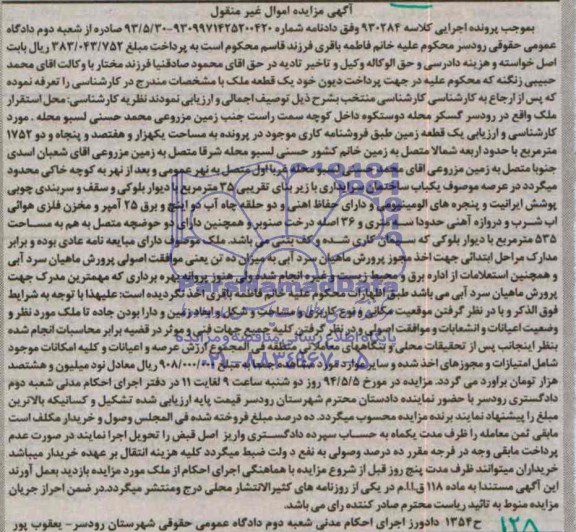 آگهی مزایده اموال غیر منقول
بموجب پرونده اجرایی کلاسه ۹۳۰۲۸۴ وفق دادنامه شماره ۹۳۰۹۹۷۱۴۲۵۲۰۰۴۲۰-۹۳/۵/۳۰ صادره از شعبه دوم دادگاه
عمومی حقوقی رودسر محکوم علیه خانم فاطمه باقری فرزند قاسم محکوم است به پرداخت مبلغ ۳۸۳/۰۴۳/۷۵۲ ریال بابت
اصل خواسته و هزینه دادرسی و حق الوکاله وکیل و تاخیر تادیه در حق اقای محمود صادقنیا فرزند مختار با وکالت اقای محمد
حبیبی زنگنه که محکوم علیه در جهت پرداخت دیون خود یک قطعه ملک با مشخصات مندرج در کارشناسی را تعرفه نموده
که پس از ارجاع به کارشناسی کارشناسی منتخب بشرح ذیل توصیف اجمالی و ارزیابی نمودند نظریه کارشناسی: محل استقرار
ملک واقع در رودسر گسکر محله دوستکوه داخل کوچه سمت راست جنب زمین مزروعی محمد حسنی لسبو محله . مورد
کارشناسی و ارزیابی یک قطعه زمین طبق فروشنامه کاری موجود در پرونده به مساحت یکهزار و هفتصد و پنجاه و دو ۱۷۵۲
مترمربع با حدود اربعه شمالا متصل به زمین خانم کشور حسنی لسبو محله شرقا متصل به زمین مزروعی اقای شعبان اسدی
جنوبا متصل به زمین مزروعی اقای محمد حسنی لسبو محله غربا اول متصل به نهر عمومی و بعد از نهر به کوچه خاکی محدود
میگردد در عرصه موصوف یکباب ساختمان سرایداری با زیر بنای تقریبی ۳۵ مترمربع با دیوار بلوکی و سقف و سربندی چوبی
پوشش ایرانیت و پنجره های الومینیومی و دارای حفاظ اهنی و دو حلقه چاه آب دو اینچ و برق ۲۵ آمپر و مخزن فلزی هوائی
اب شرب و دروازه آهنی حدودا سه متری و ۳۶ اصله درخت صنوبر و همچنین دارای دو حوضچه متصل به هم به مساحت
۵۳۵ مترمربع با دیوار بلوکی که سیمان کاری شده و کف بتنی می باشد. ملک موصوف دارای مبایعه نامه عادی بوده و برابر
مدارک مراحل ابتدائی جهت اخذ مجوز پرورش ماهیان سرد آبی به میزان ده تن یعنی موافقت اصولی پرورش ماهیان سرد آبی
و همچنین استعلامات از اداره برق و محیط زیست و غیره انجام شده ولی هنوز پروانه بهره برداری که مهمترین مدرک جهت
پرورش ماهیان سرد آبی می باشد طبق اظهارات محکوم علیه خانم فاطمه باقری اخذ نگردیده است: علیهذا با توجه به شرایط
فوق الذکر و با در نظر گرفتن موقعیت مکانی و نوع کاربری و مساحت و شکل و ابعاد زمین و دارا بودن جاده تا ملک مورد نظر و
وضعیت اعیانات و انشعابات و موافقت اصولی و در نظر گرفتن کلیه جمیع جهات فنی و موثر در قضیه برابر محاسبات انجام شده
بنظر اینجانب پس از تحقیقات محلی و بنگاههای معاملاتی منطقه فی المجموع ارزش عرصه و اعیانات و کلیه امکانات موجود
شامل امتیازات و مجوزهای اخذ شده و سایر موارد مورد مشاهده جمعا به مبلغ ۹۰۸/۰۰۰/۰۰۰ ریال معادل نود میلیون و هشتصد
هزار تومان براورد می گردد. مزایده در مورخ ۹۴/۵/۵ روز دو شنبه ساعت ۹ لغایت ۱۱ در دفتر اجرای احکام مدنی شعبه دوم
دادگستری رودسر با حضور نماینده دادستان محترم شهرستان رودسر قیمت پایه ارزیابی شده تشکیل و کسانیکه بالاترین
مبلغ را پیشنهاد نمایند برنده مزایده محسوب میگردد. ده درصد مبلغ فروخته شده فی المجلس وصول و خریدار مکلف است
مابقی ثمن معامله را ظرف مدت یکماه به حساب سپرده دادگستری واریز اصل قبض را تحویل اجرا نمایند در صورت عدم
پرداخت مابقی وجه در فرجه مقرر ده درصد وصولی به نفع دولت ضبط میگردد کلیه هزینه انتقال بر عهده خریدار میباشد
خریداران میتوانند ظرف مدت پنج روز قبل از شروع مزایده با هماهنگی اجرای احکام از ملک مورد مزایده بازدید بعمل آورند
این آگهی مستندا به ماده ۱۱۸ ق.ا.ا.م در یکی از روزنامه های کثیرالانتشار محلی درج ومنتشر میگردد.در ضمن احراز جریان
مزایده منوط به تائید ریاست محترم صادر کننده رای می باشد.
ح۱۳۵۴ دادورز اجرای احکام مدنی شعبه دوم دادگاه عمومی حقوقی شهرستان رودسر- یعقوب پور
۱۲۸
ParsNamadData
پایگاه اطلاع رسانی مناقصه و مزایده
۰۲۱-۸۸۳۴۹۶۷۰-۵